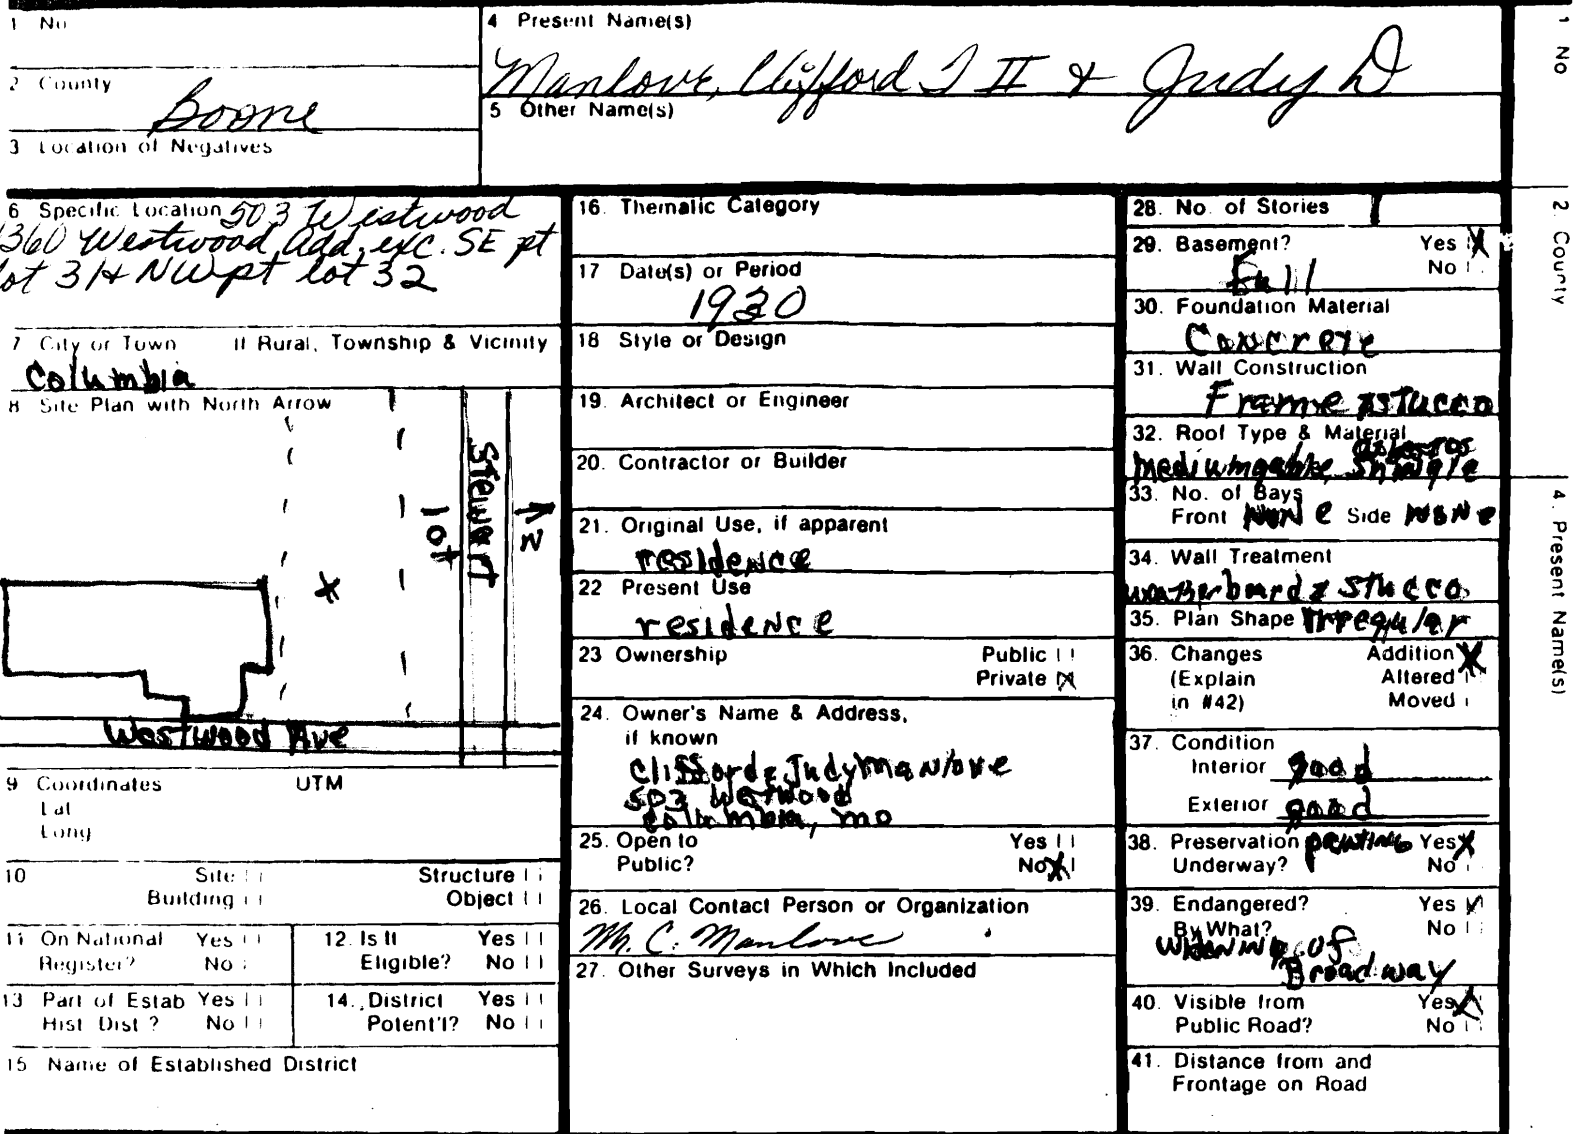 1 No
4 Present Name(s)
Manlove, Clifford T II & Judy D
2 County
Boone
5 Other Name(s)
3 Location of Negatives
6 Specific Location 503 Westwood
360 Westwood Add, exc. SE pt
lot 31 & NW pt lot 32
7 City or Town If Rural, Township & Vicinity
Columbia
8 Site Plan with North Arrow
Stewart
lot
N
Westwood Ave
9 Coordinates UTM
Lat
Long
10 Site Structure
Building Object
11 On National Register? Yes No
12. Is It Eligible? Yes No
13 Part of Estab Hist Dist? Yes No
14. District Potent'l? Yes No
15 Name of Established District
16. Thematic Category
17 Date(s) or Period
1930
18 Style or Design
19. Architect or Engineer
20. Contractor or Builder
21. Original Use, if apparent
residence
22 Present Use
residence
23 Ownership Public
Private X
24. Owner's Name & Address,
if known
Clifford & Judy Manlove
503 Westwood
Columbia, Mo
25. Open to Yes
Public? No X
26. Local Contact Person or Organization
Mr. C. Manlove
27. Other Surveys in Which Included
28. No. of Stories 1
29. Basement? Yes X
Full No
30. Foundation Material
Concrete
31. Wall Construction
Frame & stucco
32. Roof Type & Material
asbestos
medium gable, shingle
33. No. of Bays
Front None Side None
34. Wall Treatment
weatherboard & stucco
35. Plan Shape Irregular
36. Changes Addition X
(Explain Altered
in #42) Moved
37. Condition
Interior good
Exterior good
38. Preservation painting Yes X
Underway? No
39. Endangered? Yes
By What? No
widening of
Broadway
40. Visible from Yes X
Public Road? No
41. Distance from and
Frontage on Road
1 No
2. County
4. Present Name(s)